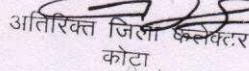 अतिरिक्त जिला कलेक्टर
कोटा